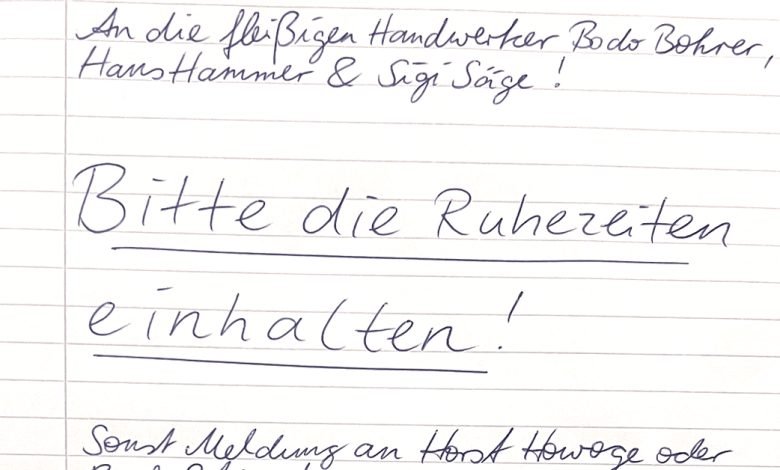 An die fleißigen Handwerker Bodo Bohrer,
Hans Hammer & Sigi Säge!
Bitte die Ruhezeiten
einhalten!
Sonst Meldung an Horst Howoge oder